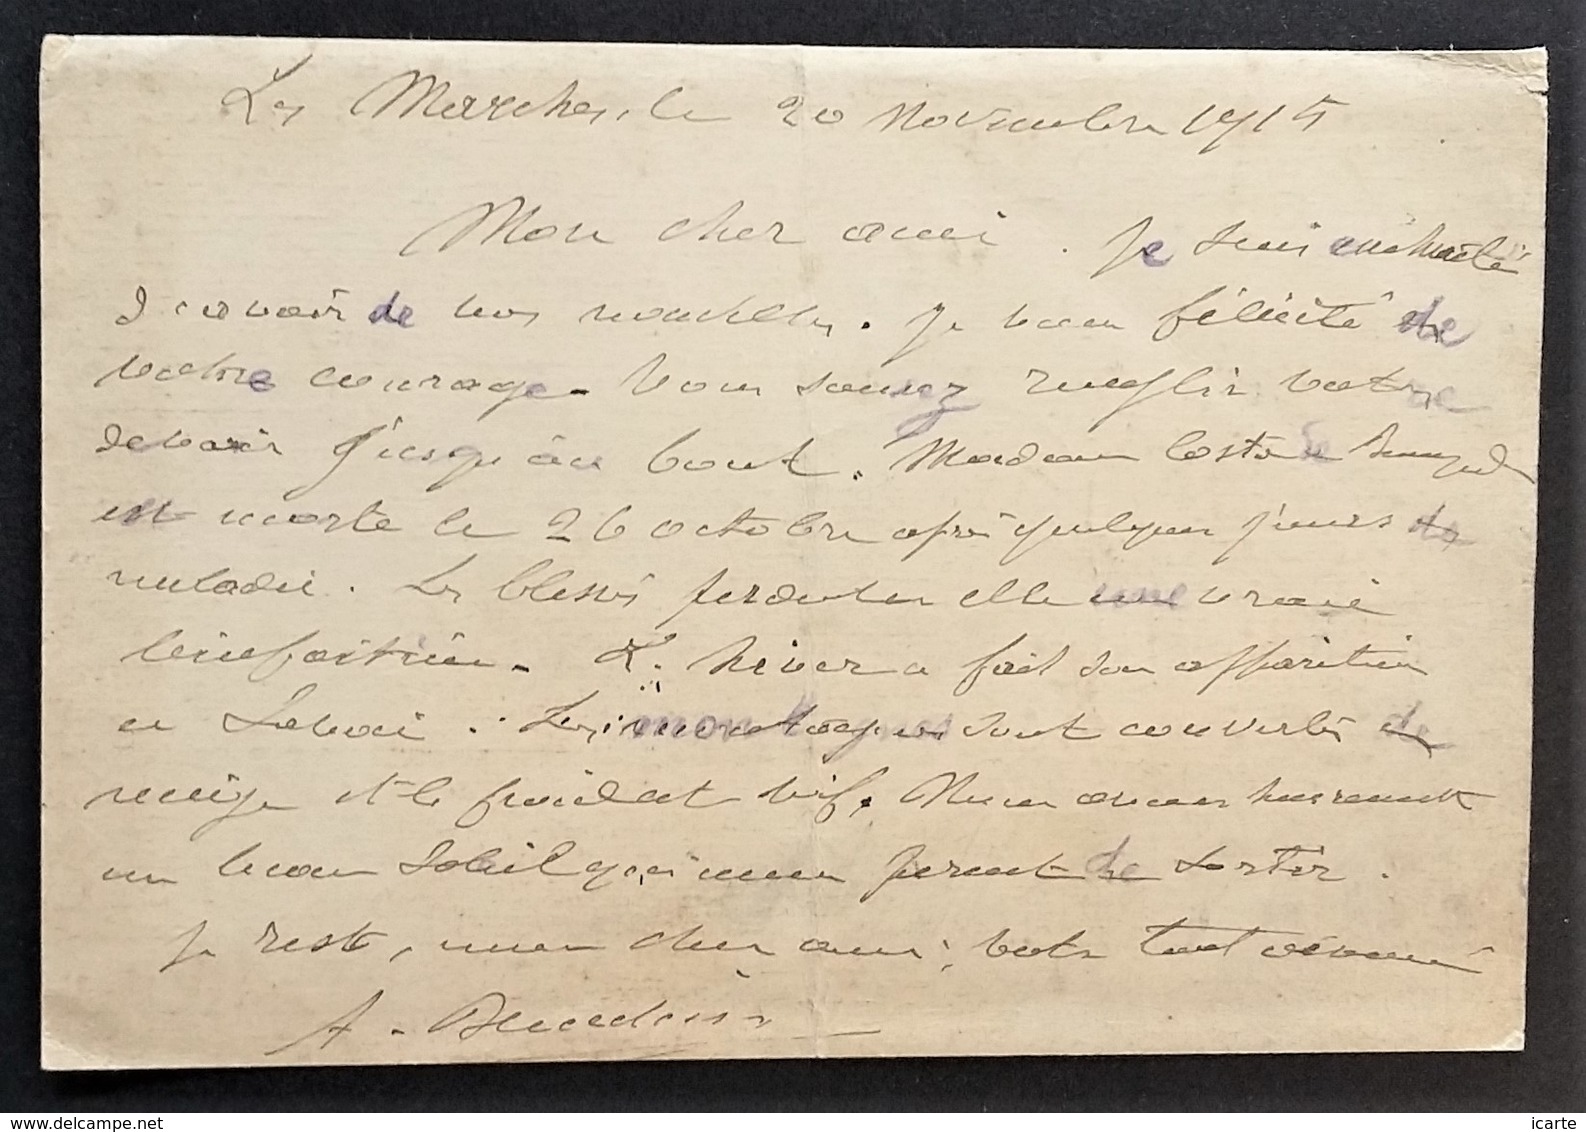 Les Marches, le 20 Novembre 1915
Mon cher ami. Je suis enchanté
d'avoir de vos nouvelles. Je vous félicite de
votre courage. Vous saurez remplir votre
devoir jusqu'au bout. Madame Costa de Beauregard
est morte le 26 octobre après quelques jours de
maladie. Les blessés perdent en elle une vraie
bienfaitrice. L'hiver a fait son apparition
en Savoie. Les montagnes sont couvertes de
neige et le froid est vif. Nous avons heureusement
un beau soleil qui nous permet de sortir.
Je reste, mon cher ami, votre tout dévoué
A.
icarte